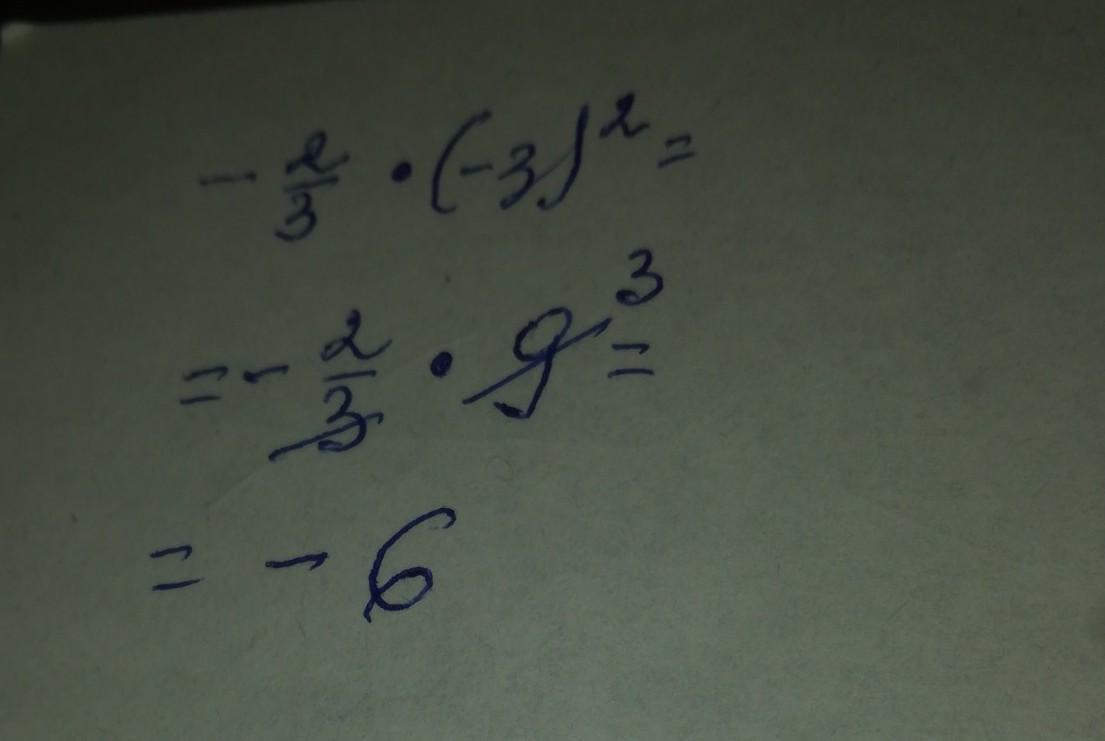 - 2/3 • (-3)² =
= - 2/3 • 9 3 =
= - 6